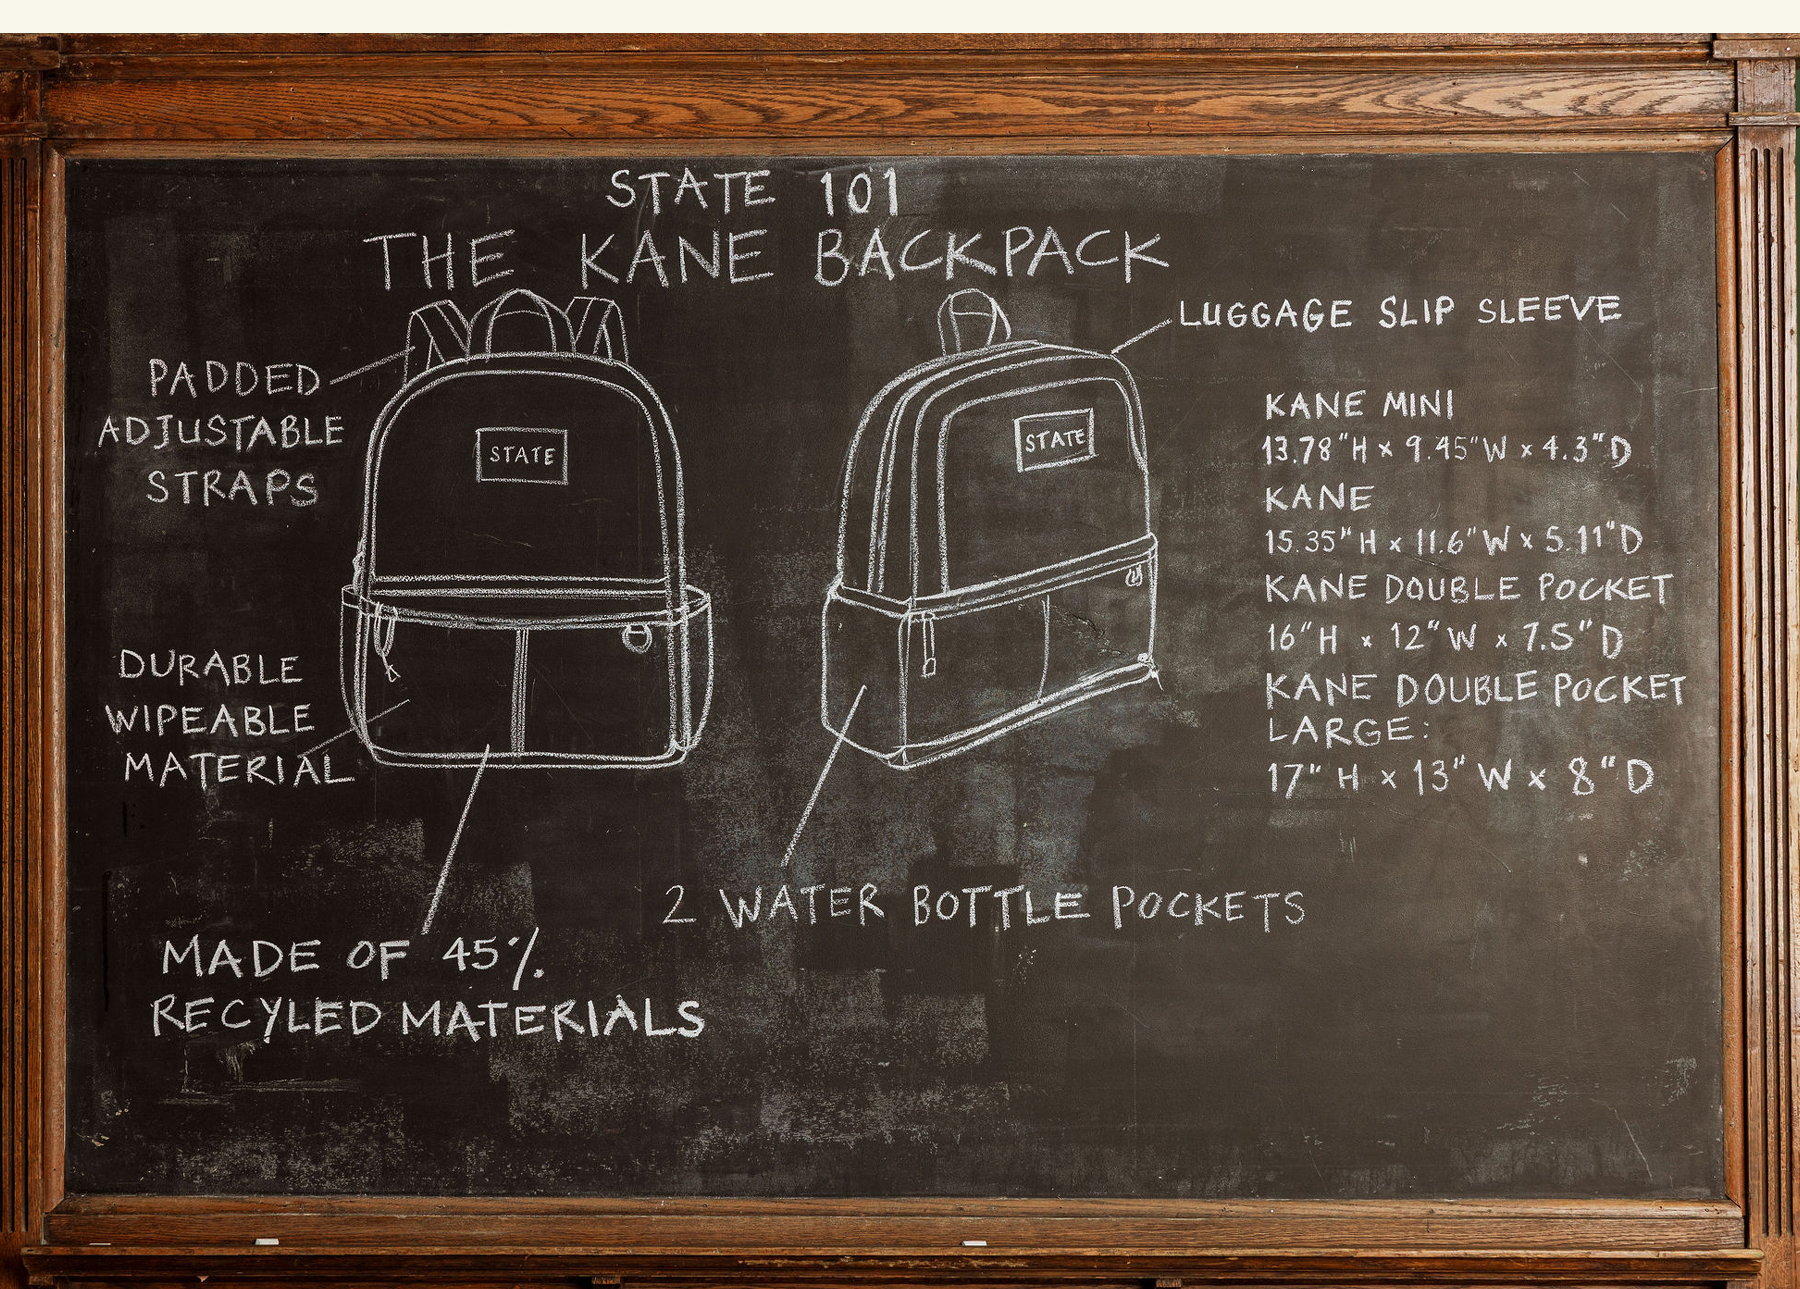 STATE 101
THE KANE BACKPACK
LUGGAGE SLIP SLEEVE
PADDED
ADJUSTABLE
STRAPS
STATE
STATE
KANE MINI
13.78"H x 9.45"W x 4.3"D
KANE
15.35"H x 11.6"W x 5.11"D
KANE DOUBLE POCKET
16"H x 12"W x 7.5"D
KANE DOUBLE POCKET
LARGE:
17"H x 13"W x 8"D
DURABLE
WIPEABLE
MATERIAL
2 WATER BOTTLE POCKETS
MADE OF 45%
RECYLED MATERIALS